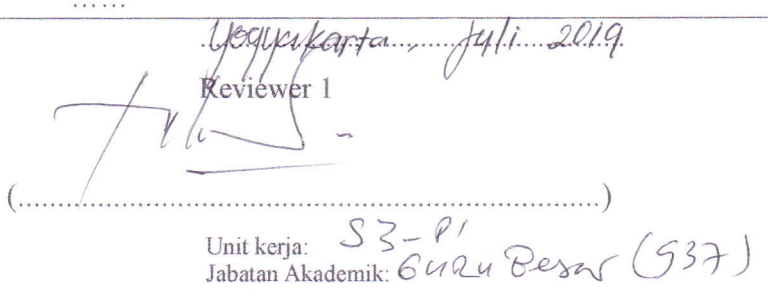 ......
Yogyakarta, Juli 2019
Reviewer 1
(......................................................................)
Unit kerja: S3-PI
Jabatan Akademik: Guru Besar (937)